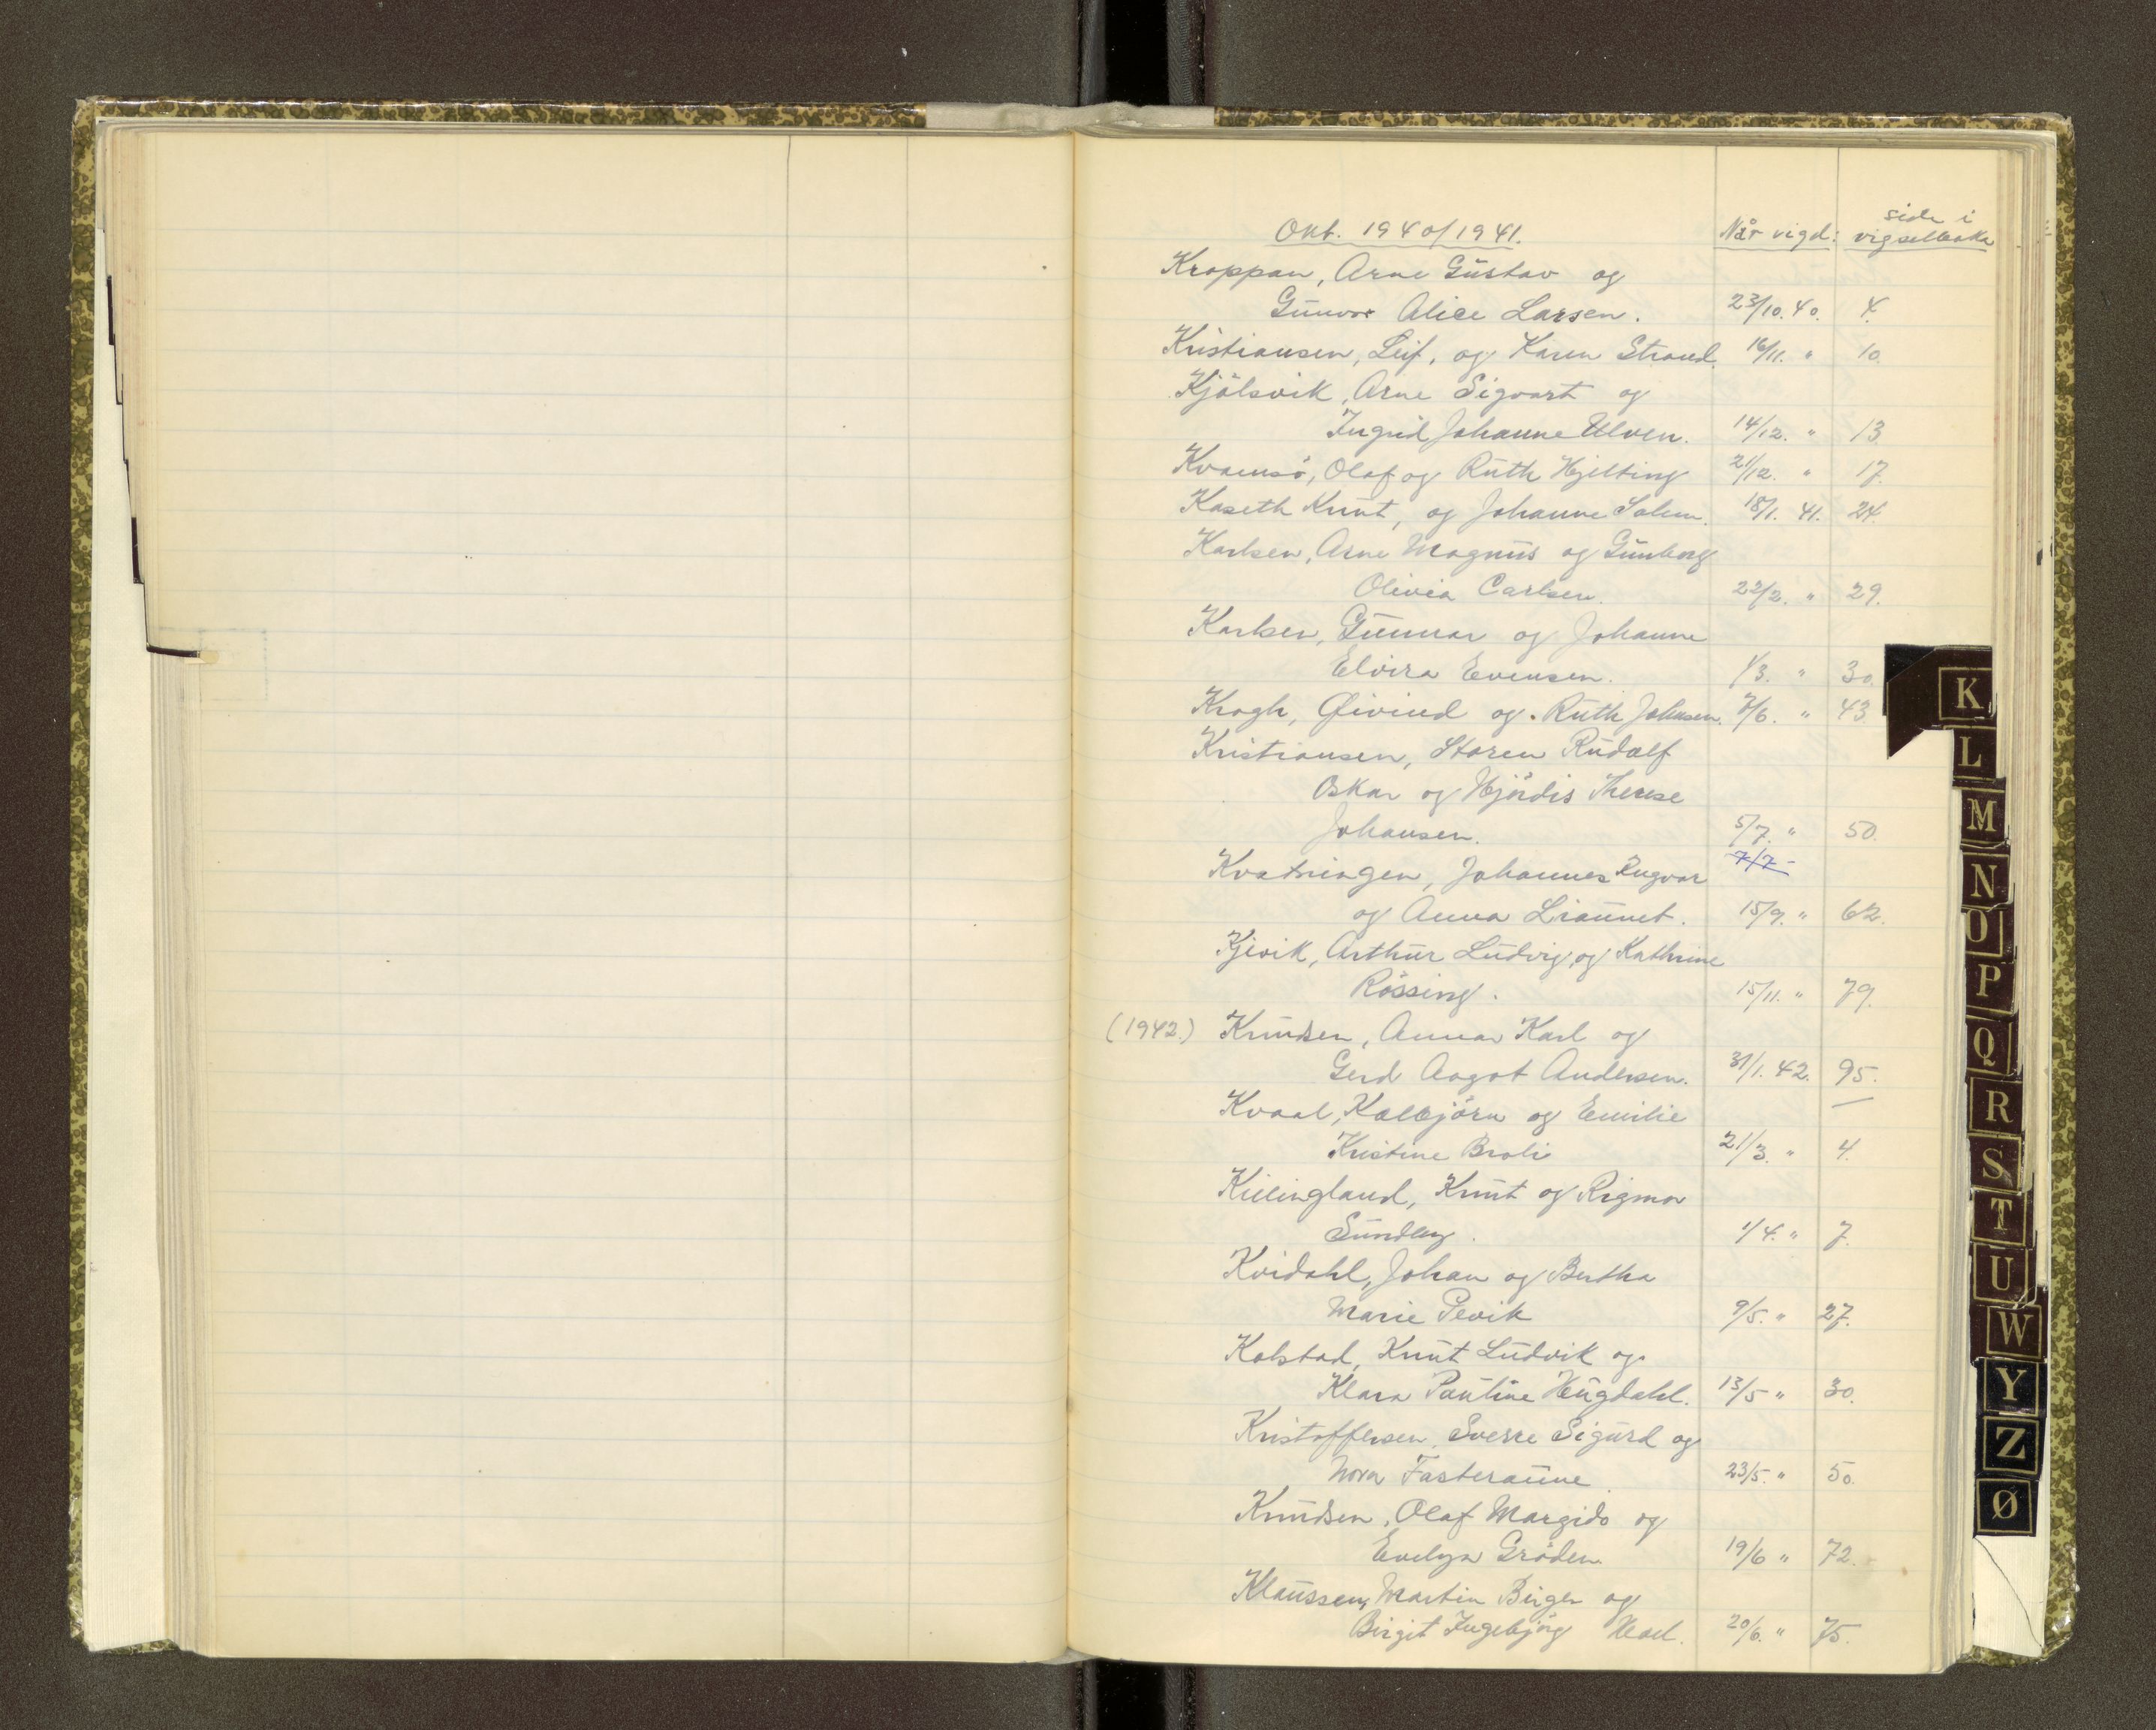 Okt. 1940/1941. Når vigd: side i vigselboka
Kroppan, Arne Gustav og
Gunvor Alice Larsen. 23/10. 40. 4.
Kristiansen, Leif, og Karen Strand. 16/11. " 10.
Kjölsvik, Arne Sigvart og
Ingrid Johanne Ulven. 14/12. " 13.
Kvamsö, Olaf og Ruth Hjelting 21/12. " 17.
Kaseth Knut, og Johanne Solem. 18/1. 41. 24.
Karlsen, Arne Magnus og Gunborg
Olivia Carlsen. 22/2. " 29.
Karlsen, Gunnar og Johanne
Elvira Evensen. 1/3. " 30.
Krogh, Øivind og Ruth Johnsen. 7/6. " 43.
Kristiansen, Storen Rudolf
Oskar og Hjördis Therese
Johansen. 5/7. " 50.
7/7 -
Kvatningen, Johannes Ingvar
og Anna Liaunet. 15/9. " 62.
Kjevik, Arthur Ludvig, og Kathrine
Rössing. 15/11. " 79.
(1942.) Knudsen, Annar Karl og
Gerd Aagot Andersen. 31/1. 42. 95.
Kvaal, Kolbjörn og Emilie
Kristine Broli 21/3. " 4.
Killingland, Knut og Rigmor
Sundby. 1/4. " 7.
Kvidahl, Johan og Bertha
Marie Pevik 9/5. " 27.
Kolstad, Knut Ludvik og
Klara Pauline Hugdahl. 13/5 " 30.
Kristoffersen, Sverre Sigurd og
Nora Fasteraune. 23/5. " 50.
Knudsen, Olaf Margido og
Evelyn Gröden. 19/6 " 72.
Klaussen, Martin Birger og
Birgit Ingebjörg 20/6. " 75.
K
L
M
N
O
P
Q
R
S
T
U
W
Y
Z
Ø